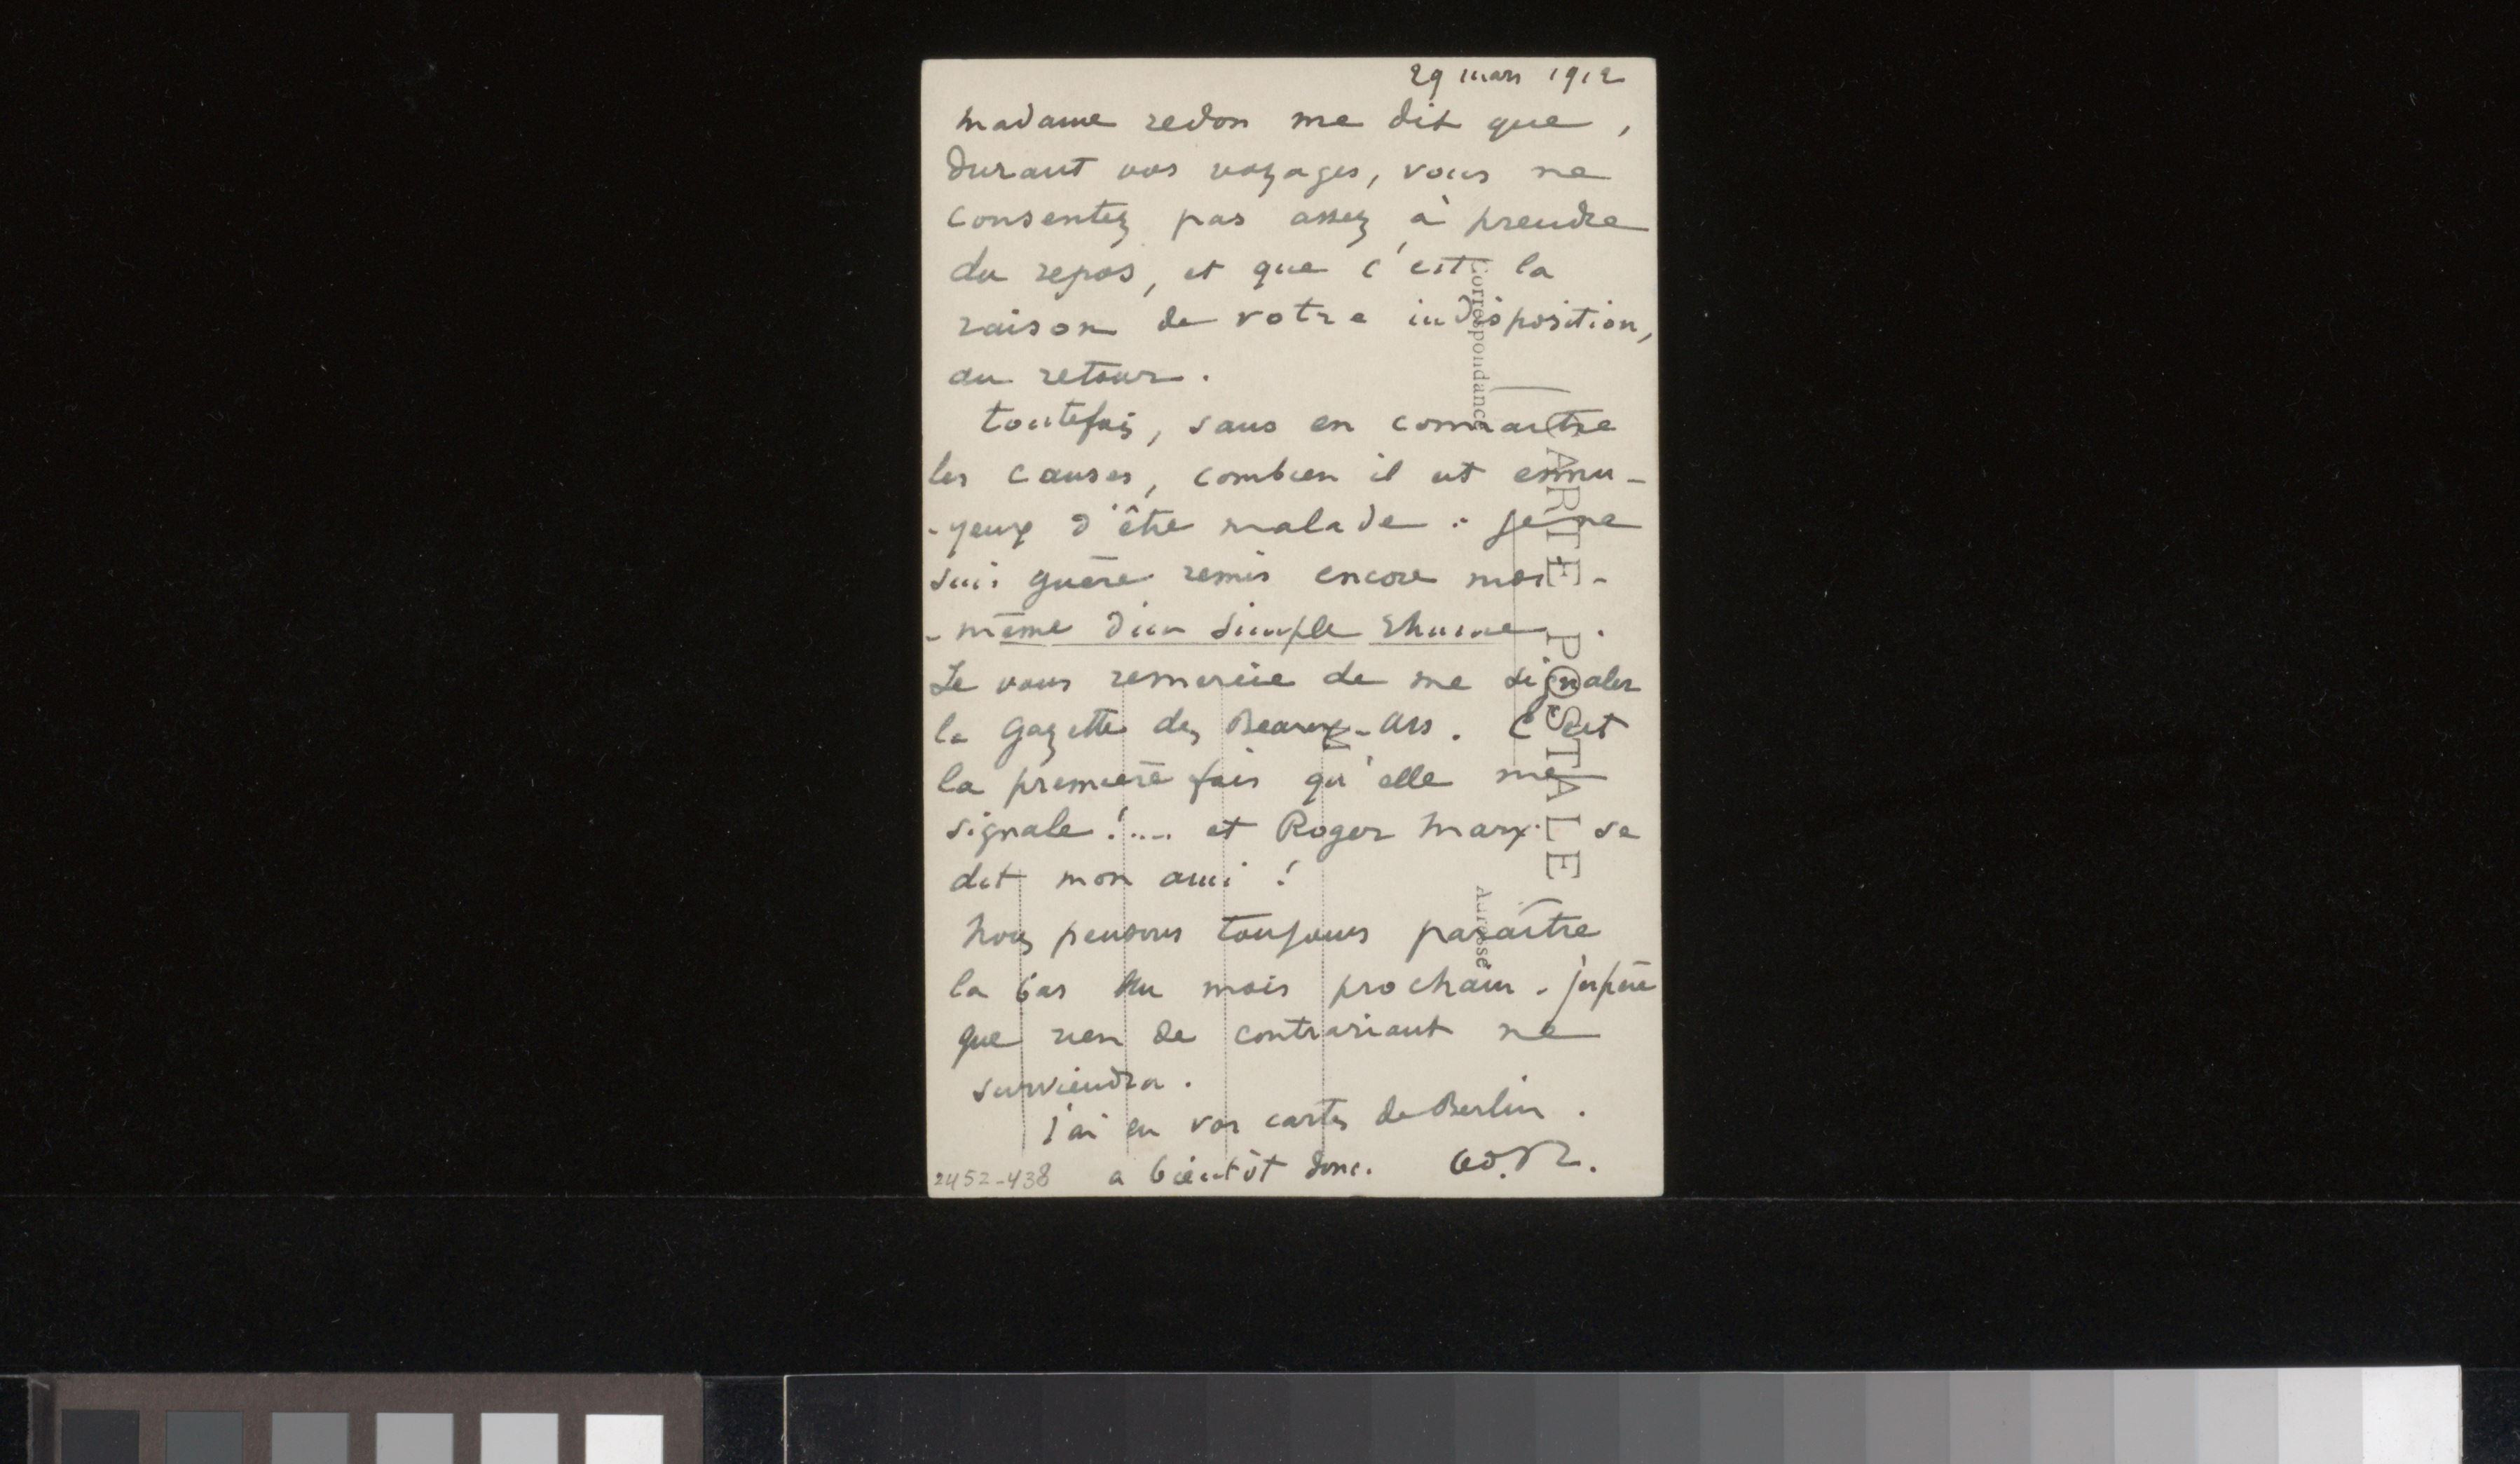 29 mars 1912
Madame redon me dit que,
durant vos voyages, vous ne
consentez pas assez à prendre
du repos, et que c'est la
raison de votre indisposition,
au retour.
toutefois, sans en connaitre
les causes, combien il est ennu-
-yeux d'être malade : je ne
suis guère remis encore moi-
-même d'un simple rhume.
Je vous remercie de me signaler
la Gazette des Beaux-Ars. C'est
la première fois qu'elle me
signale !.... et Roger Marx se
dit mon ami !
Nous pensons toujours paraître
la bas au mois prochain. j'espère
que rien de contrariant ne
surviendra.
j'ai eu vos cartes de Berlin.
a bientôt donc. Od. R.
2452-438
Correspondance
CARTE POSTALE
Adresse